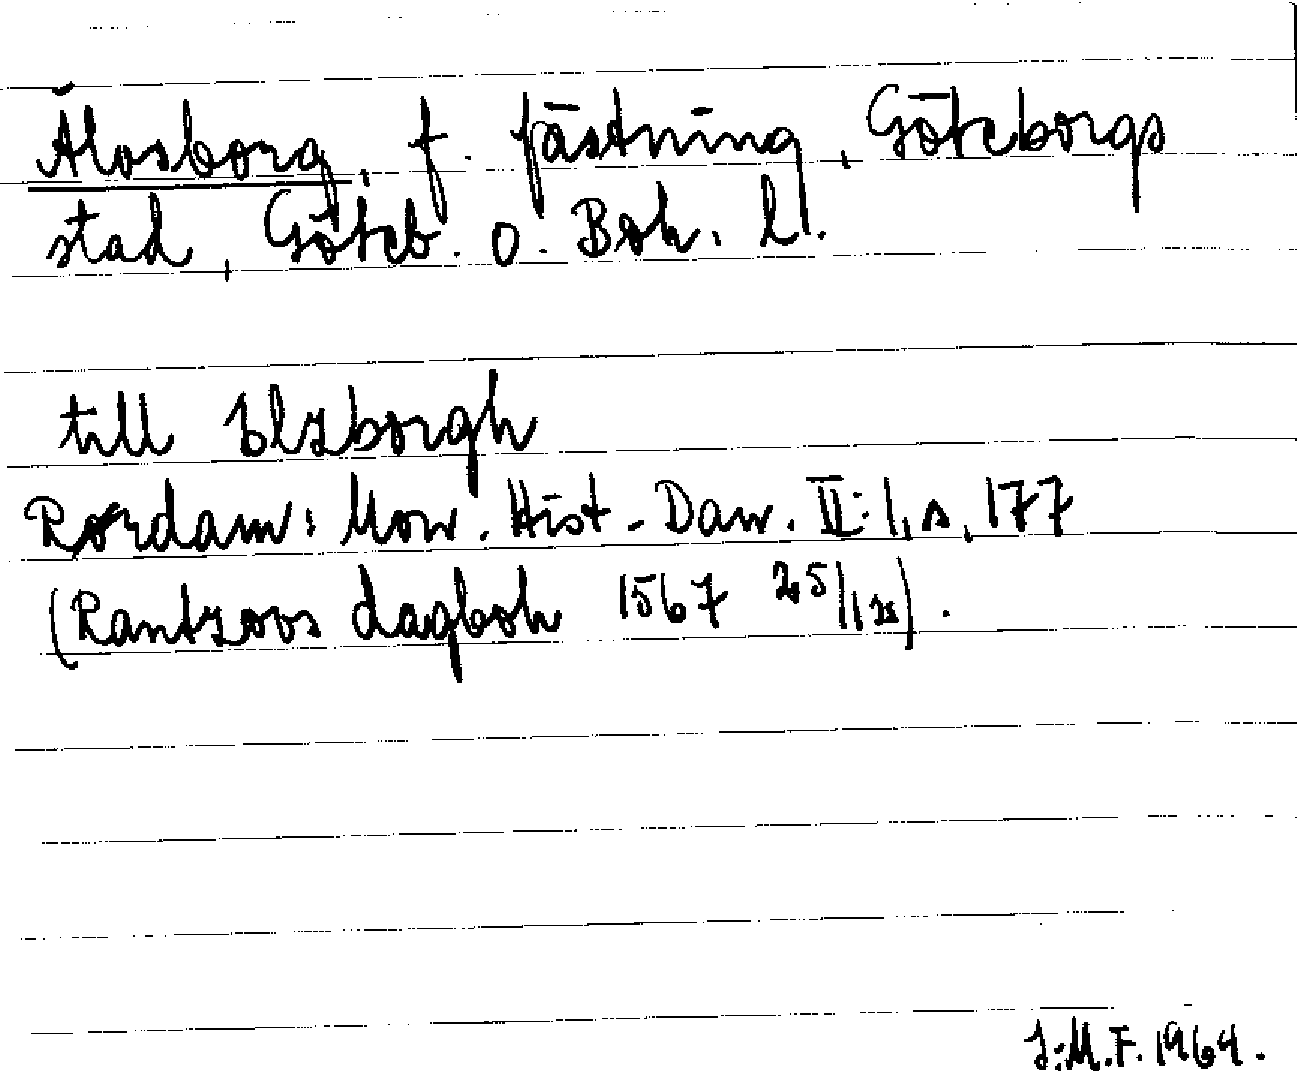 Älvsborg, f. fästning, Göteborgs
stad, Göteb. o. Boh. l.
till Elzborgh
Rørdam: Mon. Hist. Dan. II:1, s. 177
(Rantzovs dagbok 1567 25/12).
J:M.F. 1964.